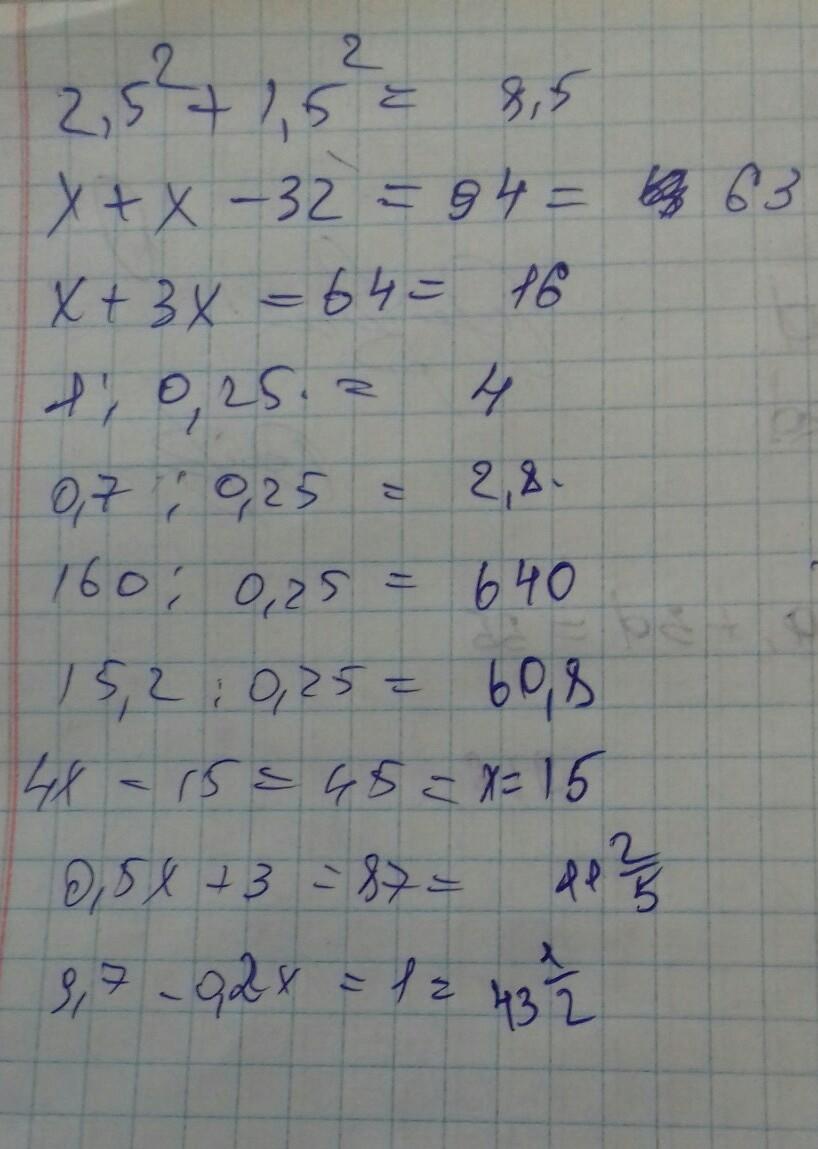 2,5² + 1,5² = 8,5
x + x - 32 = 94 = 63
x + 3x = 64 = 16
1 : 0,25 = 4
0,7 : 0,25 = 2,8.
160 : 0,25 = 640
15,2 : 0,25 = 60,8
4x - 15 = 45 = x = 15
0,5x + 3 = 87 = 11 2/5
9,7 - 0,2x = 1 = 43 1/2